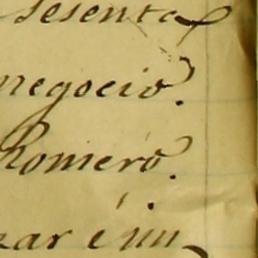 sesenta
negocio.
Romero.
zar é un